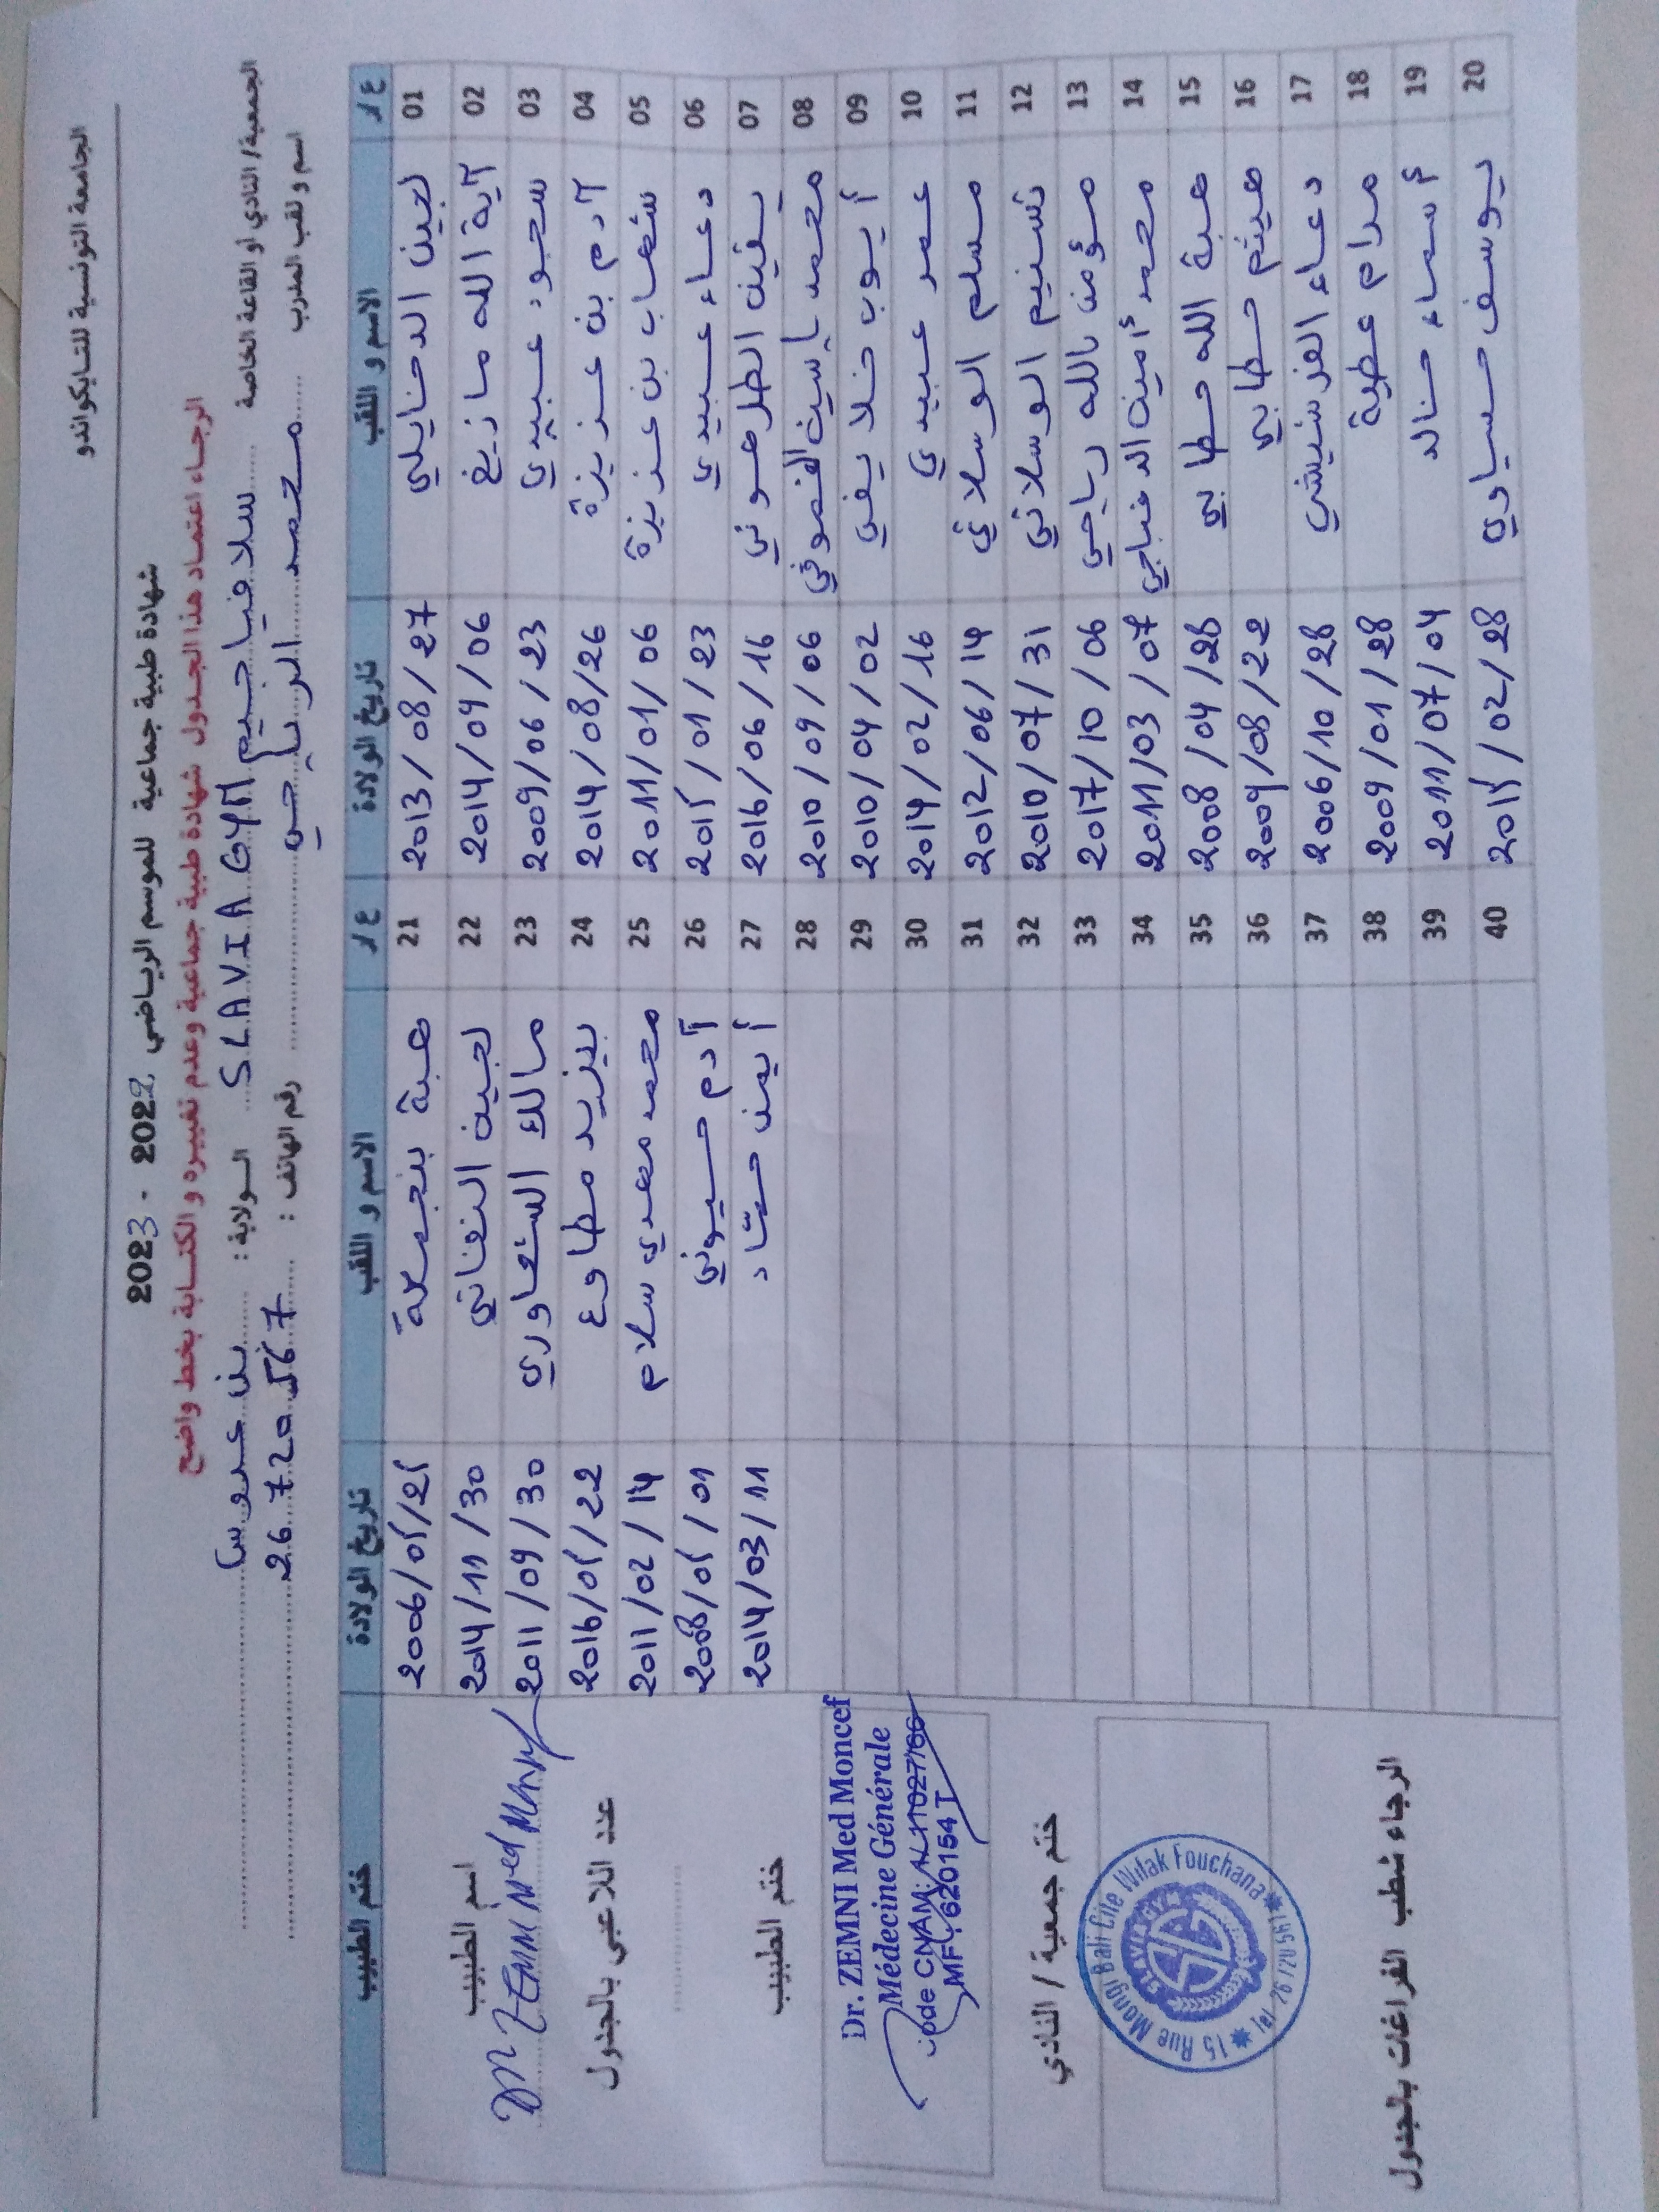 الجامعة التونسية للتايكواندو
شهادة طبية جماعية للموسم الرياضي 2022 - 2023
الرجاء اعتماد هذا الجدول شهادة طبية جماعية وعدم تغييره و الكتابة بخط واضح
الجمعية/ النادي أو القاعة الخاصة سلافيا جيم SLAVIA GYM الولاية : بن عروس
اسم و لقب المدرب محمد الرياحي رقم الهاتف : 26 720 567
ع/ر الاسم و اللقب تاريخ الولادة ع/ر الاسم و اللقب تاريخ الولادة ختم الطبيب
01 لجين الدخايلي 2013/08/27 21 هبة بنجمعة 2006/05/25
02 آية الله مازيغ 2014/09/06 22 لجين النفاتي 2014/11/30
03 سجود عبيدي 2009/06/23 23 مالك السعاوري 2011/09/30
04 آدم بن عزيزة 2014/08/26 24 يزيد مطاوع 2016/05/22
05 شهاب بن عزيزة 2011/01/06 25 محمد مهدي سلام 2011/02/14
06 دعاء عبيدي 2015/01/23 26 آدم حسيوني 2008/05/01
07 يقين الطرهوني 2016/06/16 27 أيمن حشاد 2014/03/11
08 محمد ياسين 2010/09/06 28
09 أيوب خلايفي 2010/04/02 29
10 عمر عبيدي 2014/02/16 30
11 مسلم الوسلاتي 2012/06/14 31
12 تسنيم الوسلاتي 2010/07/31 32
13 مؤمن بالله رياحي 2017/10/06 33
14 محمد أمين الدغباجي 2011/03/07 34
15 هبة الله حطابي 2008/04/28 35
16 هيثم حطابي 2009/08/22 36
17 دعاء الفرشيشي 2006/10/28 37
18 مرام عطية 2009/01/28 38
19 أسماء خالد 2011/07/04 39
20 يوسف حسياوي 2015/02/28 40
اسم الطبيب
Dr Zemni Med Moncef
عدد اللاعبي بالجدول
ختم الطبيب
Dr. ZEMNI Med Moncef
Médecine Générale
Code CNAM: 1/11027/66
MF: 620154 T
ختم جمعية / النادي
15 Rue Mongi Bali Cite Wifak Fouchana
Tel: 26 720 567
الرجاء شطب الفراغات بالجدول